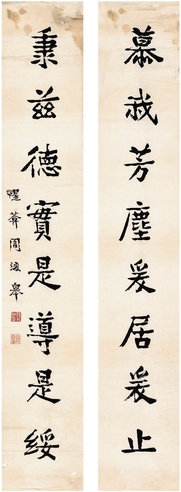 慕哉芳塵爰居爰止
秉兹德實是導是綏
耀華周浚皋